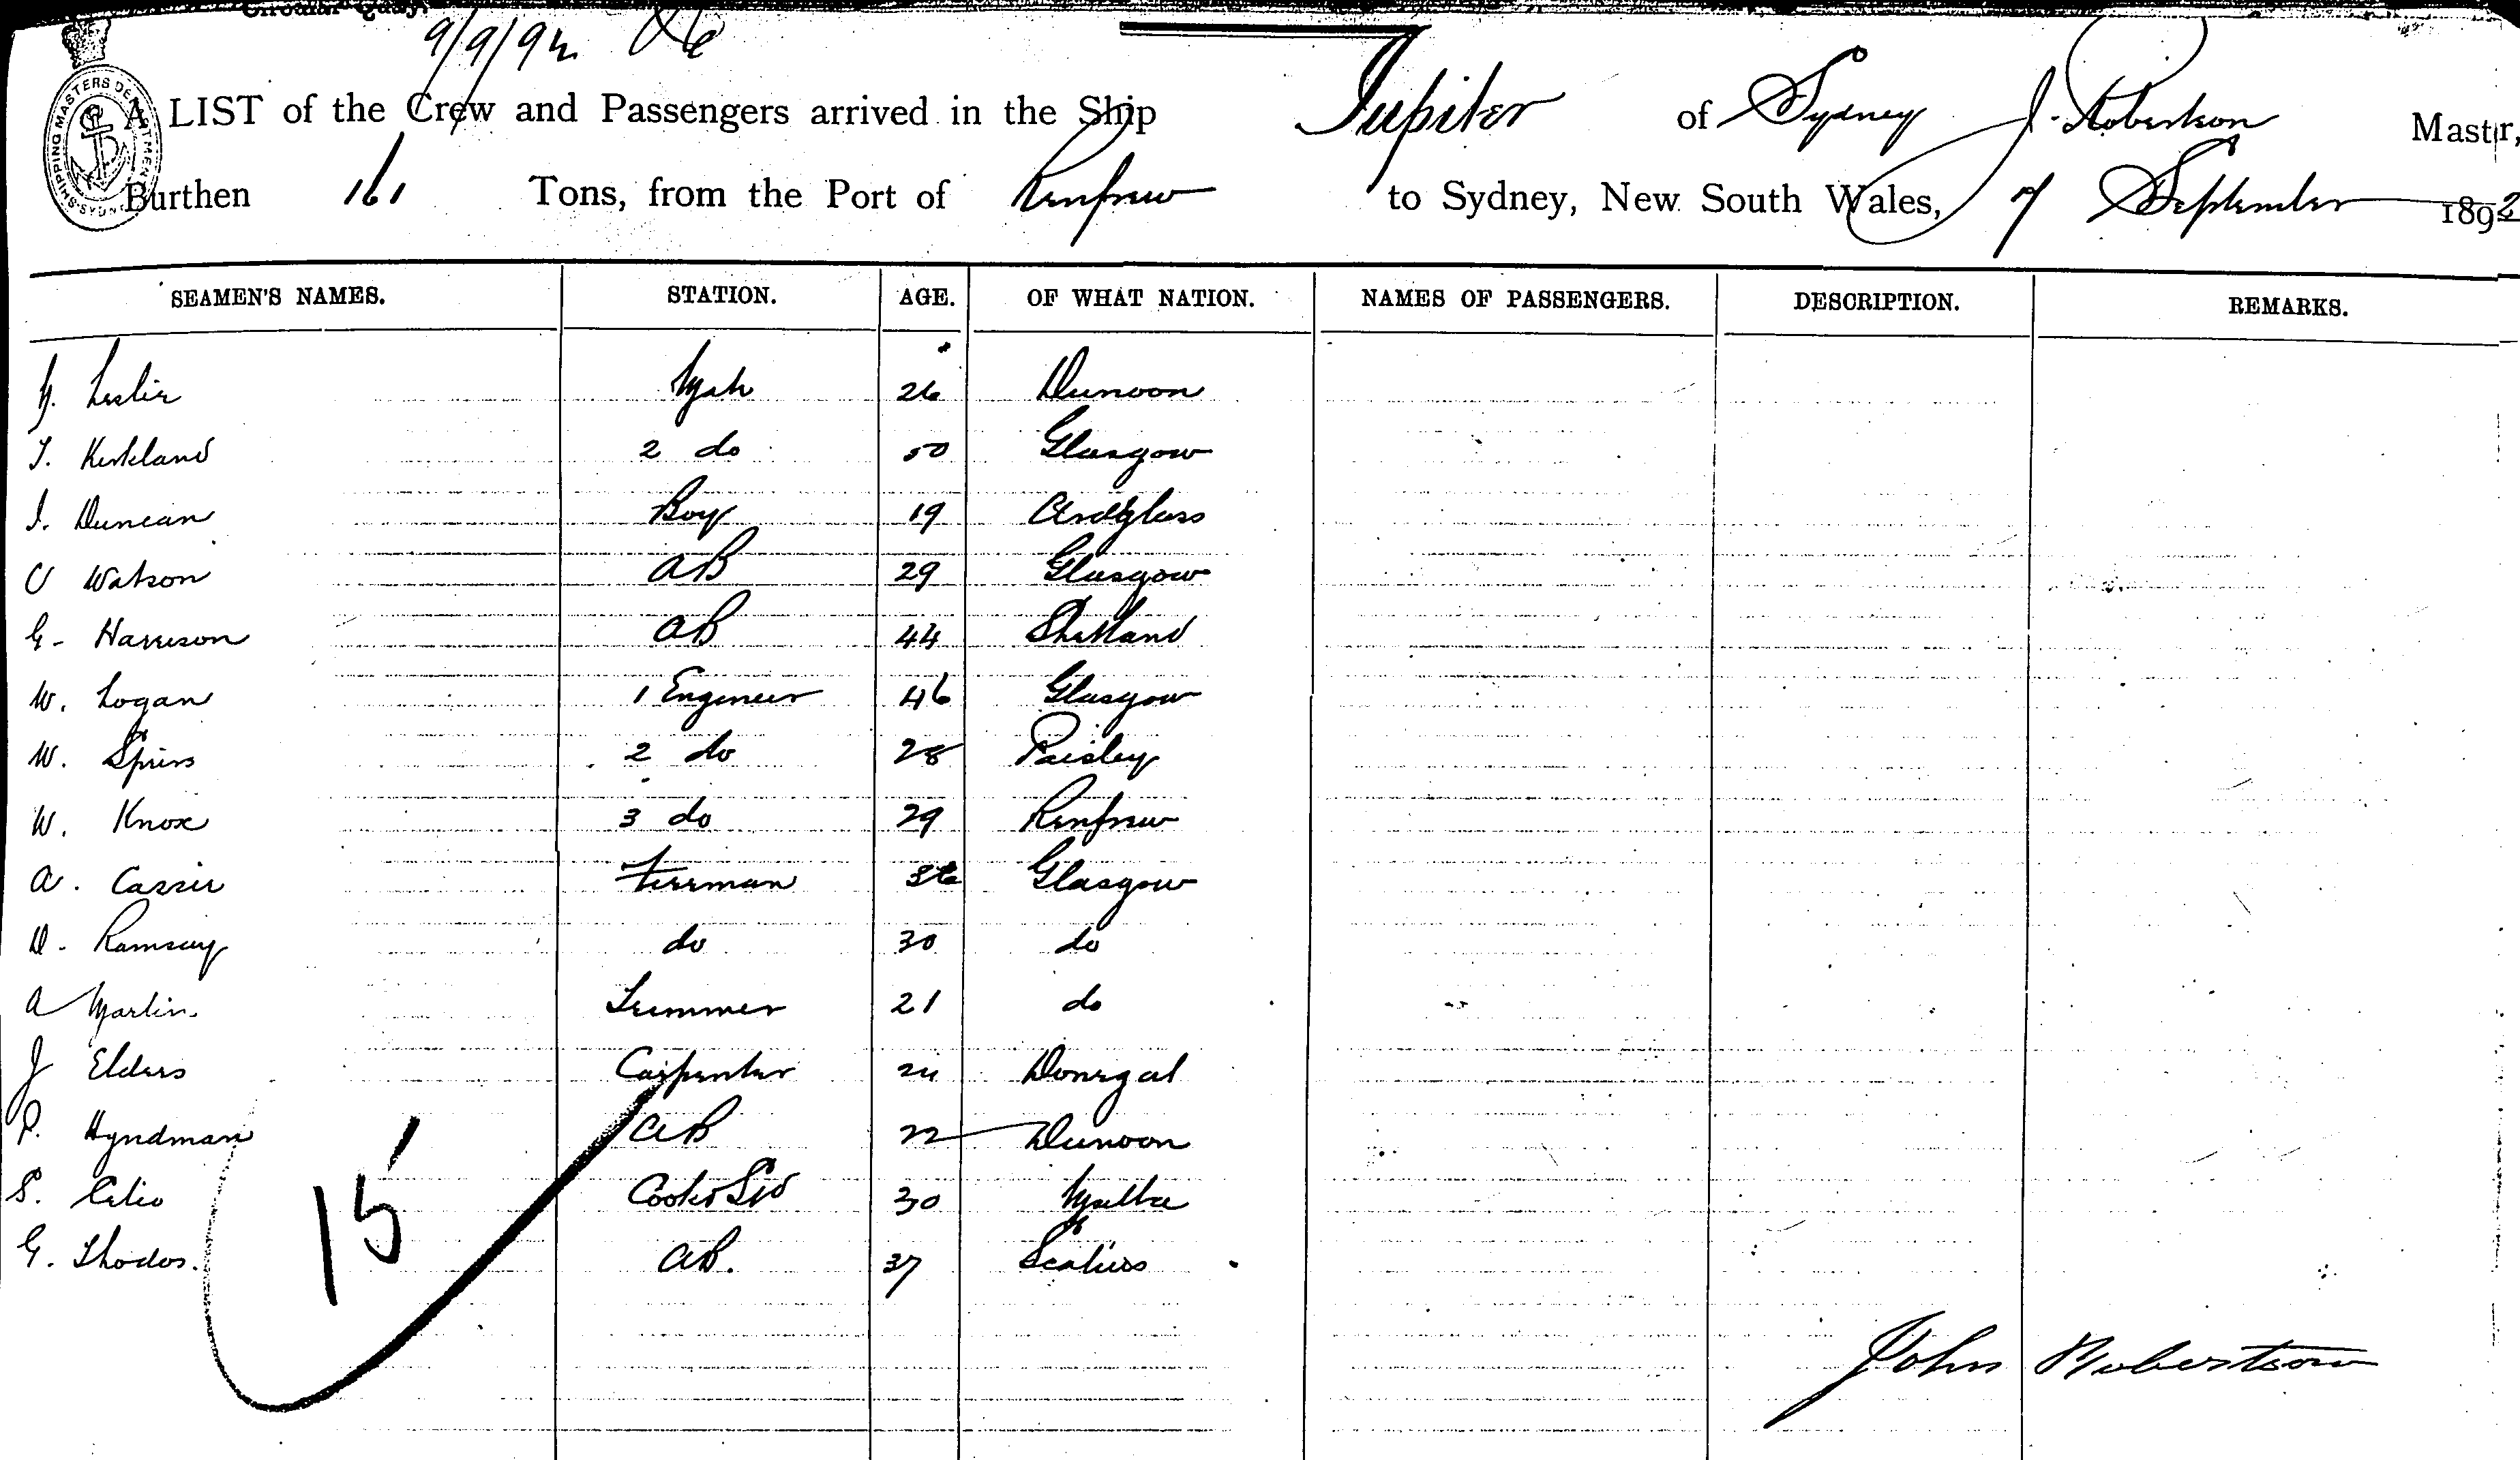 Circular Quay,
9/9/92
SHIPPING MASTERS DEPARTMENT SYDNEY
A LIST of the Crew and Passengers arrived in the Ship Jupiter of Sydney J. Robertson Master,
Burthen 161 Tons, from the Port of Renfrew to Sydney, New South Wales, 7 September 1892
SEAMEN'S NAMES. STATION. AGE. OF WHAT NATION. NAMES OF PASSENGERS. DESCRIPTION. REMARKS.
Leslie Mate 26 Dunoon
T. Kirkland 2 do 50 Glasgow
J. Duncan Boy 19 Ardglass
Watson AB 29 Glasgow
G. Harrison AB 44 Shetland
W. Logan 1 Engineer 46 Glasgow
W. Spiers 2 do 28 Paisley
W. Knox 3 do 29 Renfrew
A. Cassie Fireman 36 Glasgow
D. Ramsay do 30 do
A Martin Trimmer 21 do
J Elders Carpenter 24 Donegal
P. Hyndman AB 22 Dunoon
S. Cook & Std 30 Malta
G. AB. 37
15
John Robertson